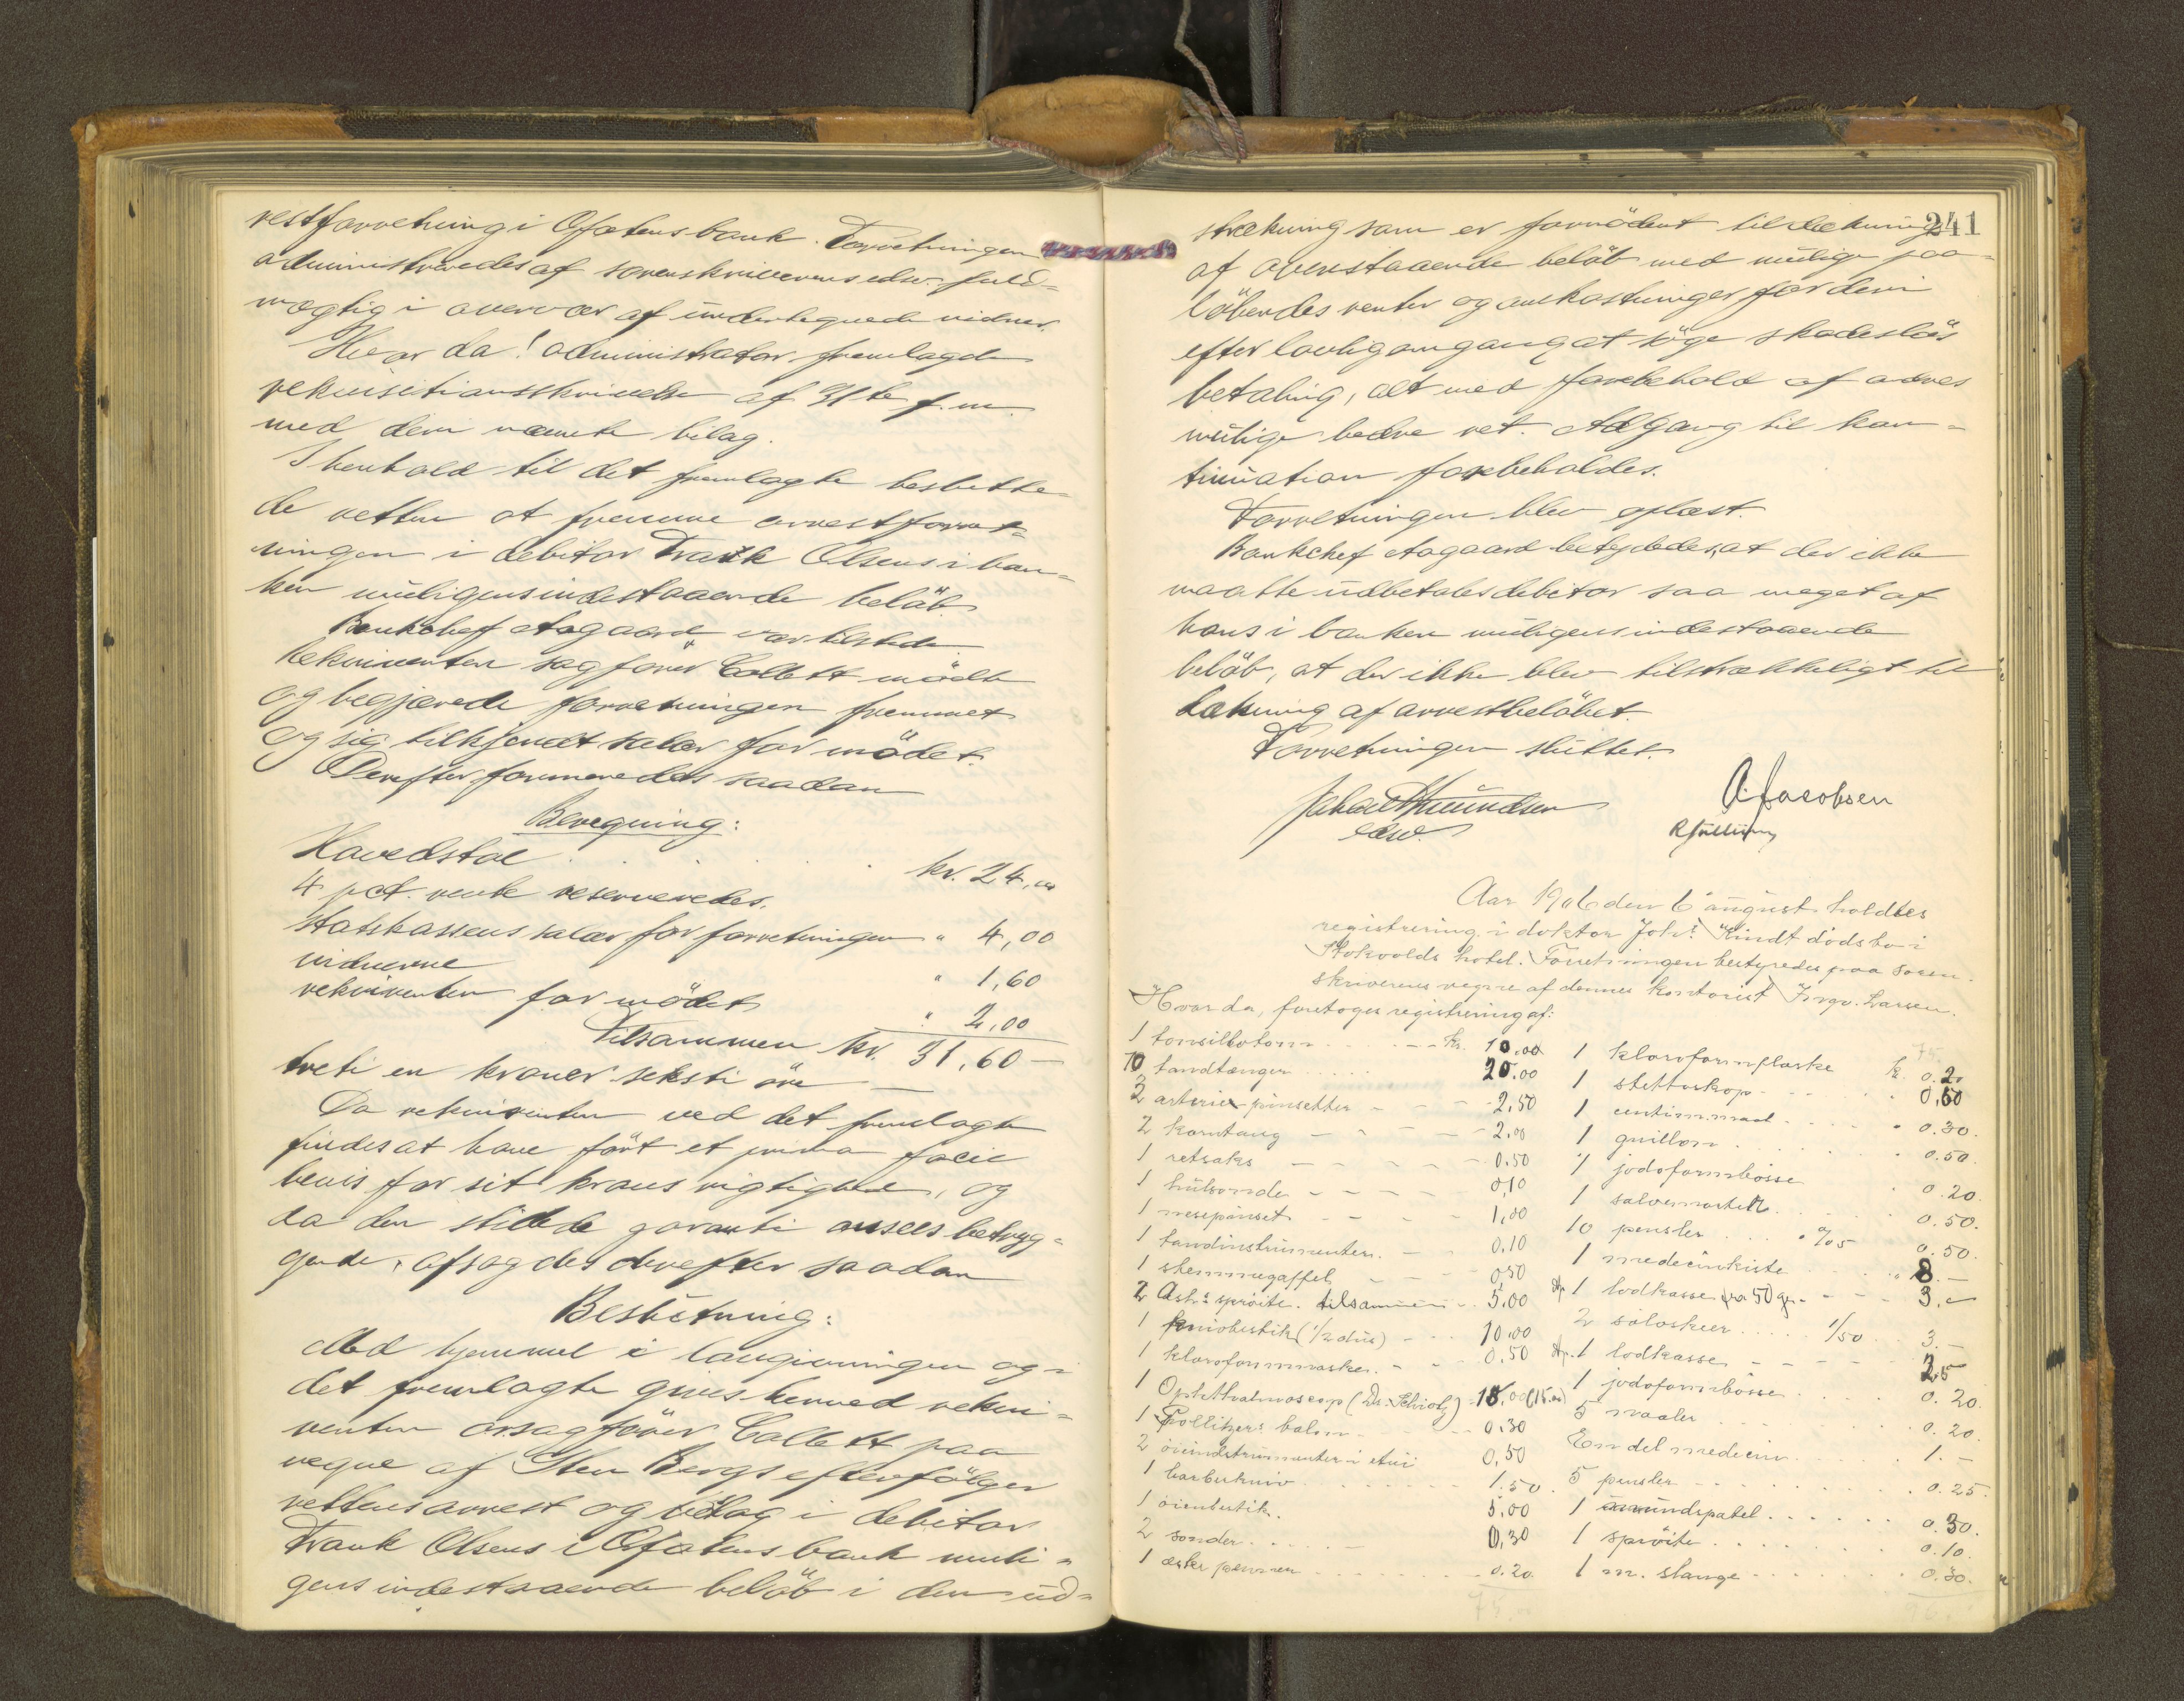 restforretning i Ofotens bank. Forretningen
administreredes af sorenskriverens edsv. fuld=
mægtig i overvær af undertegnede vidner.
Hvor da! administrator fremlagde
rekvisitionsskrivelse af 31te f.m.
med deri nævnte bilag.
I henhold til det fremlagte beslutte=
de retten at fremme arrestforret=
ningen i debitor Frank Olsens i ban=
ken muligens indestaaende beløb.
Bankchef Aagaard var tilstede.
Rekvirenten sagfører Collett mødte
og begjærede forretningen fremmet
og sig tilkjendt salær for mødet.
Derefter formeredes saadan
Beregning:
Hovedstol kr. 24,00
4 pct. rente reserveredes.
Statskassens salær for forretningen " 4,00
vidnerne " 1,60
rekvirenten for mødet " 2,00
Tilsammen kr. 31,60 —
treti en kroner seksti øre —
Da rekvirenten ved det fremlagte
findes at have ført et prima facie
bevis for sit kravs rigtighed, og
da den stillede garanti ansees betryg=
gende, afsagdes derefter saadan
Beslutning:
Med hjemmel i lovgivningen og i
det fremlagte gives herved rekvi=
renten orsagfører Collett paa
vegne af Sten Bergs efterfølger
rettens arrest og udlæg i debitor
Frank Olsens i Ofotens bank muli=
gens indestaaende beløb i den ud=
241
strækning som er fornødent til dækning
af ovenstaaende beløb med mulige paa=
løbendes renter og omkostninger for deri
efter lovlig omgang at søge skadesløs
betaling, alt med forbehold af andres
mulige bedre ret. Adgang til kon=
tinuation forbeholdes.
Forretningen blev oplæst.
Bankchef Aagaard betydedes, at der ikke
maatte udbetales debitor saa meget af
hans i banken muligens indestaaende
beløb, at der ikke blev tilstrækkeligt til
dækning af arrestbeløbet.
Forretningen sluttet.
A. Jacobsen
edsv.
Aar 1906 den 6 august holdtes
registrering i doktor Johs Kindt dødsbo i
Skokvolds hotel. Forretningen bestyredes paa soren-
skriverens vegne af dennes kontorist Ingv. Larsen.
Hvor da, foretoges registrering af:
1 tonsillotom kr. 10.00
10 tandtænger 20.00
2 arteriepinsetter 2,50
2 korntang 2,00
1 retsaks 0.50
1 hulsonde 0,10
1 nesepinset 1,00
1 tandinstrumenter 0,10
1 stemmegaffel 0,50
2 Ash's sprøite. tilsammen 5.00
1 kniobestik (1/2 dus) 10.00
1 kloroformmaske 0.50
1 Ophthalmoscop (Dr. Schiøtz) 15,00 (15.00)
1 Pollitzers balon 0.30
2 øieinstrumenter i etui 0,50
1 barberkniv 1.50
1 øienbestik 5,00
2 sonder 0,30
1 æske penner 0.20
1 kloroformflaske kr. 0.20
1 stettoskop 0,60
1 centim.maal 0.30
1 guillon 0.50
1 jodoformbøsse 0.20
1 salvemorter 0.50
10 pensler a/05 0.50
1 medecinkiste " 8.—
1 lodkasse fra 50 gr. 3.—
2 sølvskeer 1/50 3.—
1 lodkasse 2,5
1 jodoformbøsse 0.20
5 naaler 0.20
En del medecin 1.—
5 pensler 0.25
1 mundspatel 0.30
1 sprøite 0.10
1 m. slange 0.30